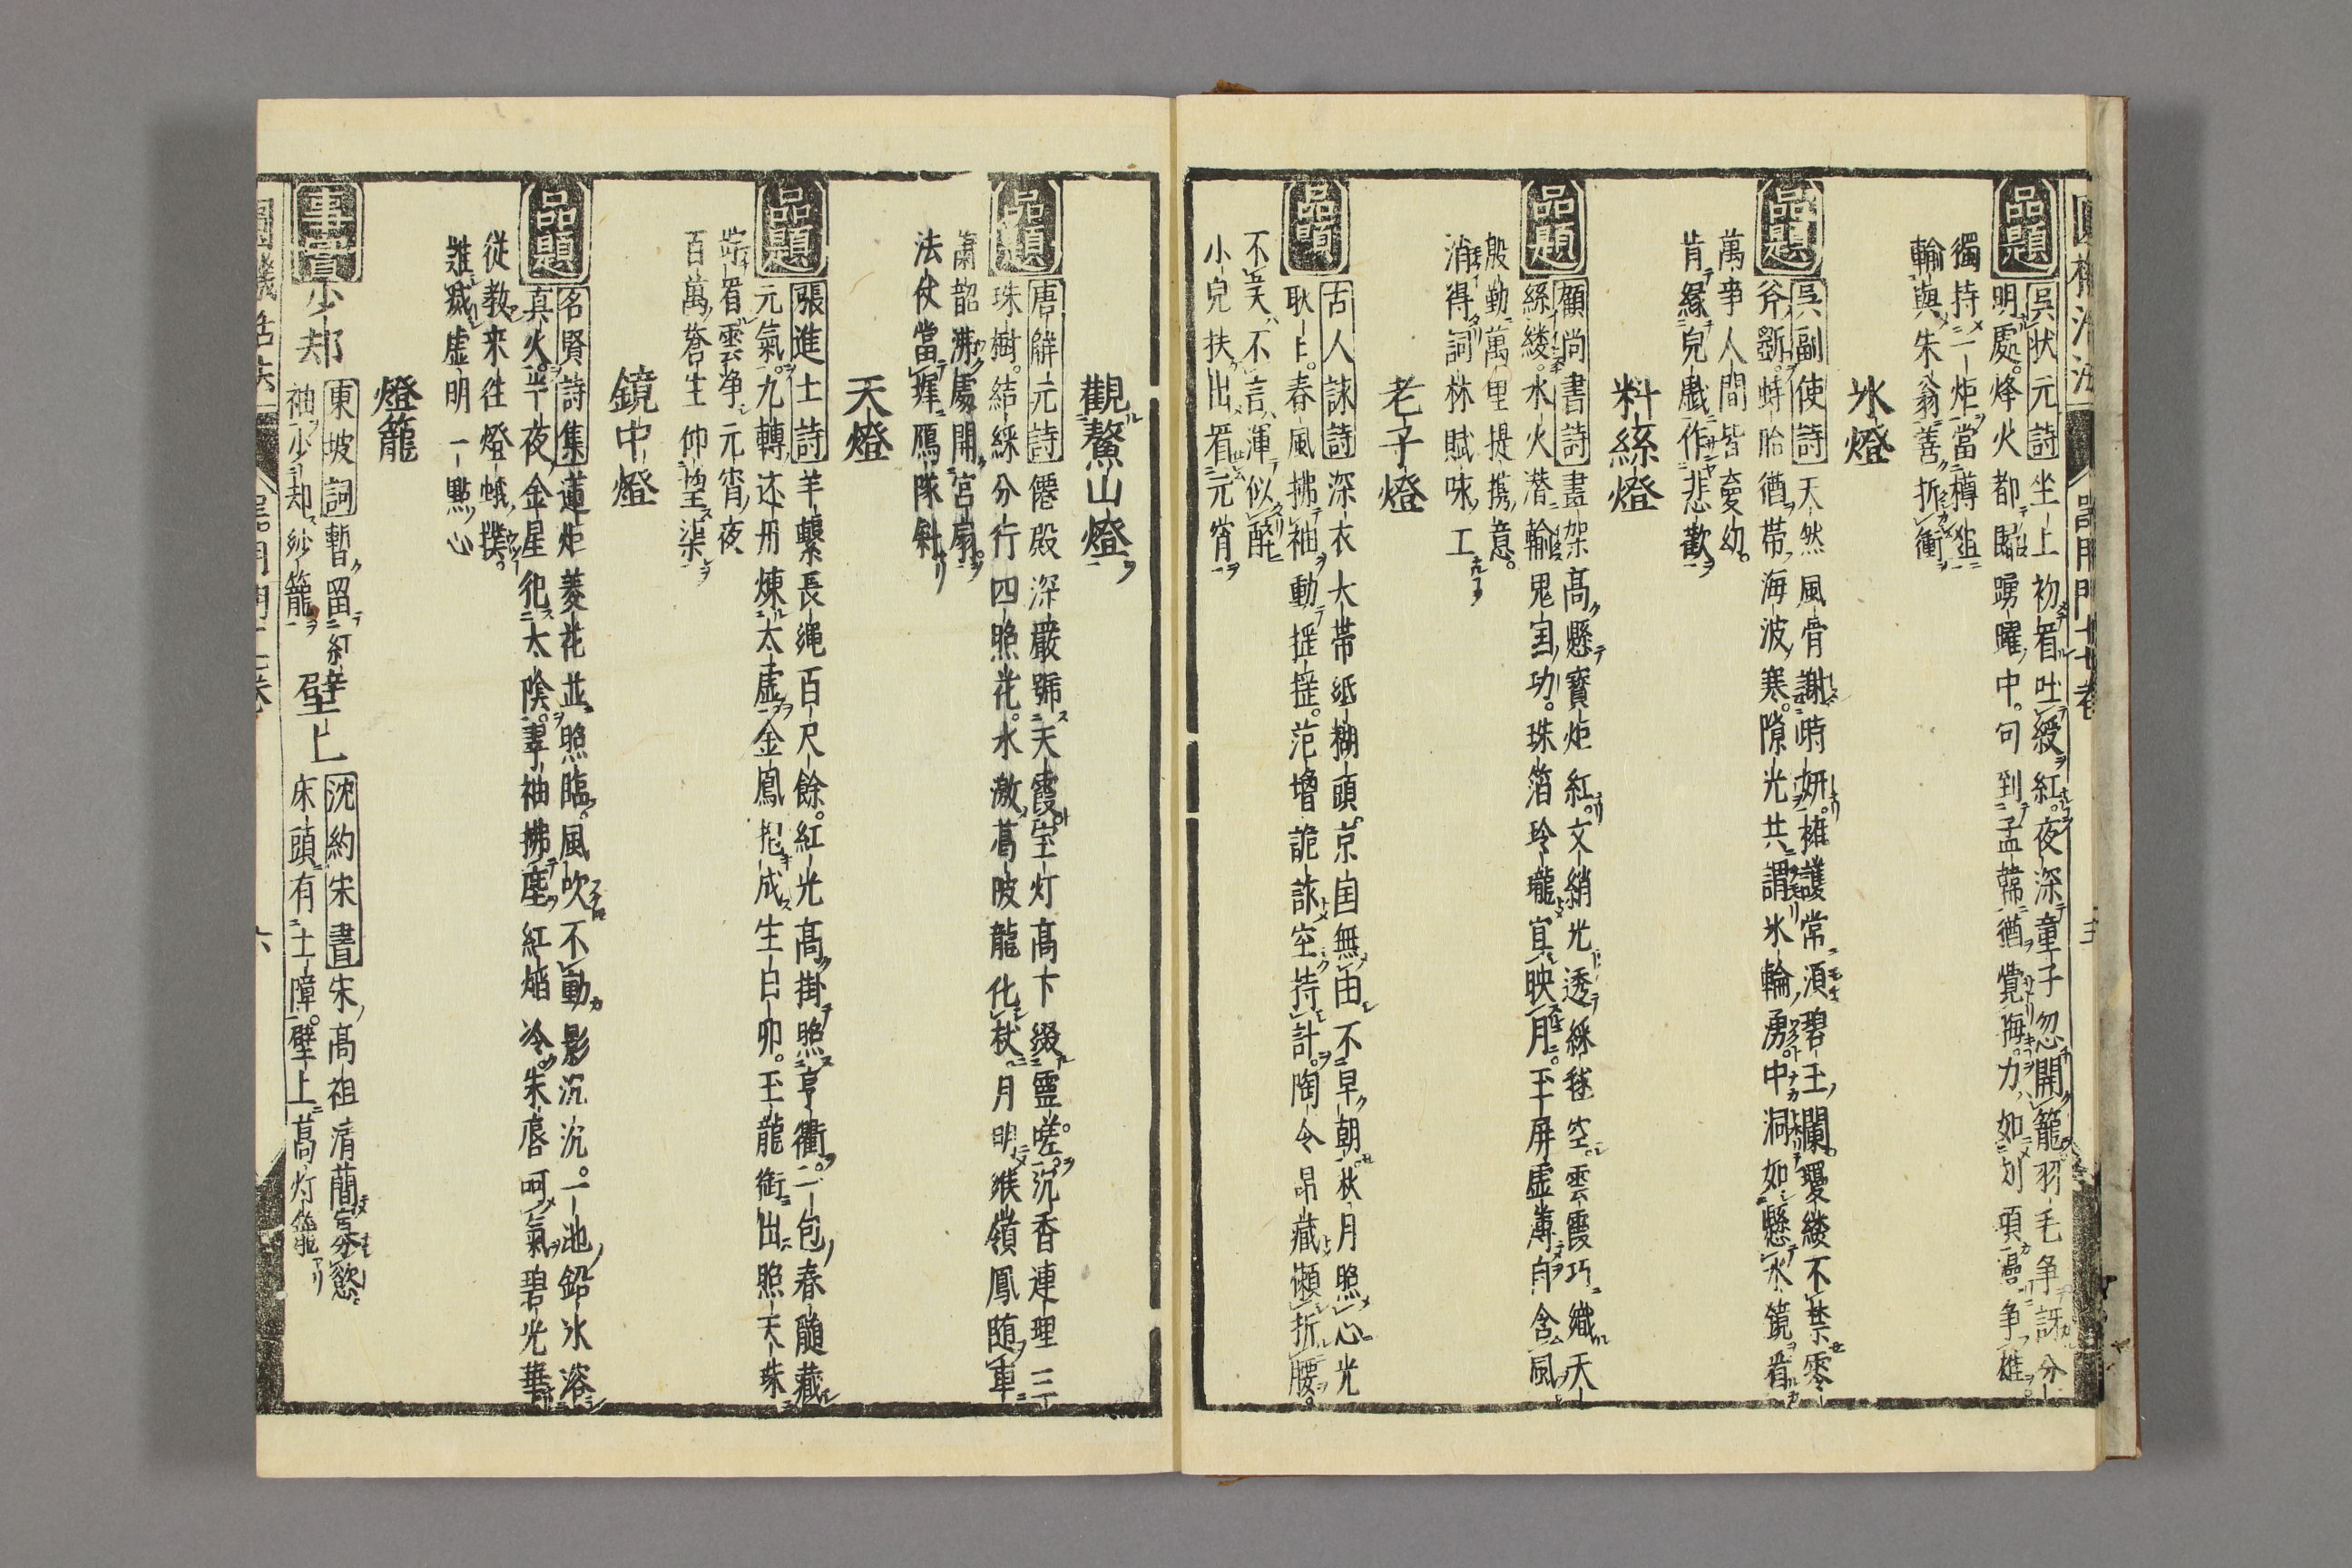 品題
吳狀元詩 坐上初看吐綬紅。夜深童子忽開籠羽毛爭訝分
明處。烽火都驅踴曜中。句到孟韓猶覺海。力如劉項爭雄。
獨持一炬當樽俎
輪與朱翁善折衝
氷燈
品題
吳副使詩 天然風骨謝時妍。擁護常須碧玉闌。瓔縷不禁零
斧斲。蚌胎猶帶海波寒。隙光共謂氷輪勇。中洞如懸水鏡看
萬事人間皆變幻。
肯緣兒戲作悲歡
料絲燈
品題
顧尚書詩 畫架高懸寶炬紅。文綃光透綵毬空。雲霞巧織天
絲縷。水火潛輪鬼国功。珠箔玲瓏寘映月。玉屏虛薄自含風
殷勤萬里提携意。
消得詞林賦咏工
老子燈
品題
古人詠詩 深衣大帶紙糊頭。京国無由不早朝。秋月照心光
耿耿。春風拂袖動搖搖。范增詭詠空持計。陶令昂藏懶折腰。
不笑不言渾似醉
小兒扶出看元宵
觀鰲山燈
品題
唐解元詩 僊殿深嚴號天霞。宝灯高下綴靈嗟。沉香連理三
珠樹。結綵分行四照花。水激葛陂龍化杖。月明緱嶺鳳随車
簫韶沸處開宮扇。
法仗當墀鴈隊斜
天燈
品題
張進士詩 羊轣長繩百尺餘。紅光高掛照亨衢。一包春髓藏
元氣。九轉还丹煉太虛金鳳抱成生白卯。玉龍銜出照天珠
時看雲净元宵夜
百萬蒼生仰望渠
鏡中燈
品題
名賢詩集 蓮炬菱花並照臨。風吹不動影沉沉。一池鉛氷溶
真火。半夜金星犯太陰。翠袖拂塵紅焰冷。朱唇呵氣碧光華
従教来往燈蛾撲。
難滅虛明一點心
燈籠
事實
少却 東坡詞 暫留紅
袖少却紗籠。
壁上 沈約宋書 宋高祖清簡寡慾。
床頭有土障。壁上葛灯籠